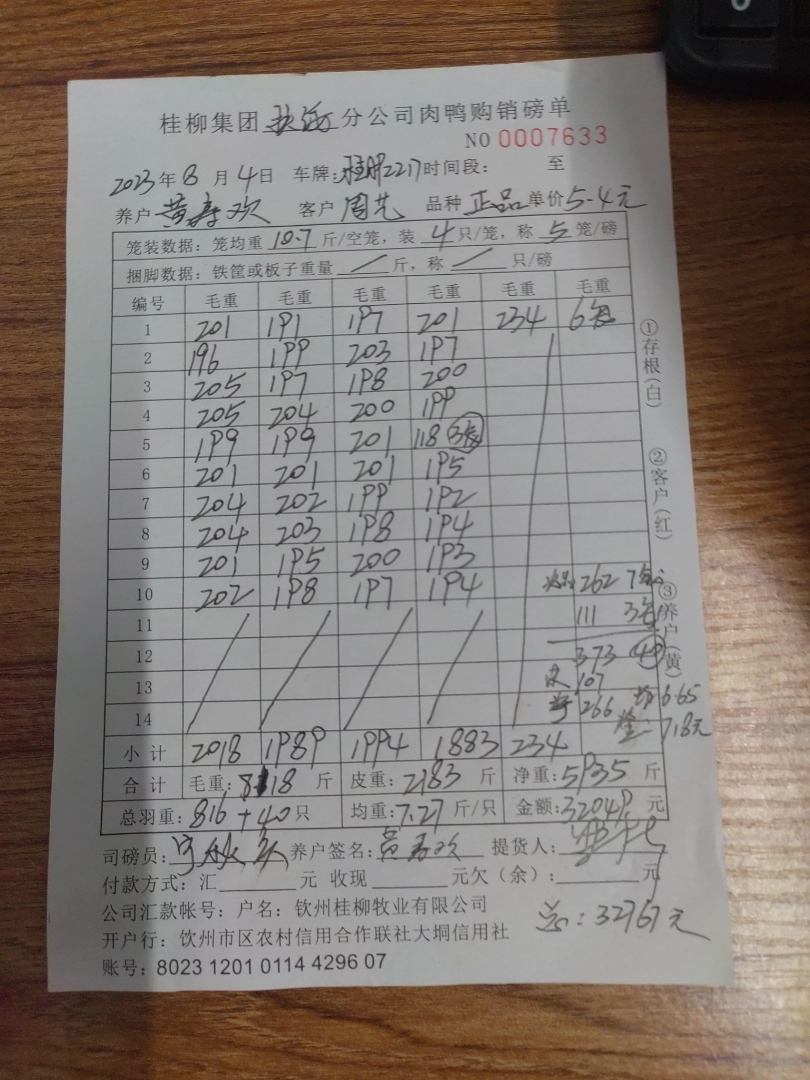 桂柳集团 分公司肉鸭购销磅单
NO 0007633
2023年8月4日 车牌: 2217时间段: 至
养户 黄寿欢 客户 周艺 品种 正品 单价5.4元
笼装数据:笼均重 10.7 斤/空笼,装 4 只/笼,称 5 笼/磅
捆脚数据:铁筐或板子重量 / 斤,称 / 只/磅
编号 毛重 毛重 毛重 毛重 毛重 毛重
1 201 191 197 201 234 6笼
2 196 199 203 197
3 205 197 198 200
4 205 204 200 199
5 199 199 201 118 3笼
6 201 201 201 195
7 204 202 199 192
8 204 203 198 194
9 201 195 200 193
10 202 198 197 194 262 7笼
11 / / / / 111 3笼
12 373 40
13 皮 107
14 净 266 均 6.65
718元
小计 2018 1989 1994 1883 234
合计 毛重:8118 斤 皮重:2183 斤 净重:5935 斤
总羽重:816+40只 均重:7.27斤/只 金额:32049. 元
司磅员: 养户签名:黄寿欢 提货人:
付款方式:汇 元 收现 元欠(余): 元
公司汇款帐号:户名:钦州桂柳牧业有限公司
总:32767元
开户行:饮州市区农村信用合作联社大垌信用社
账号:8023 1201 0114 4296 07
①存根(白) ②客户(红) ③养户(黄)